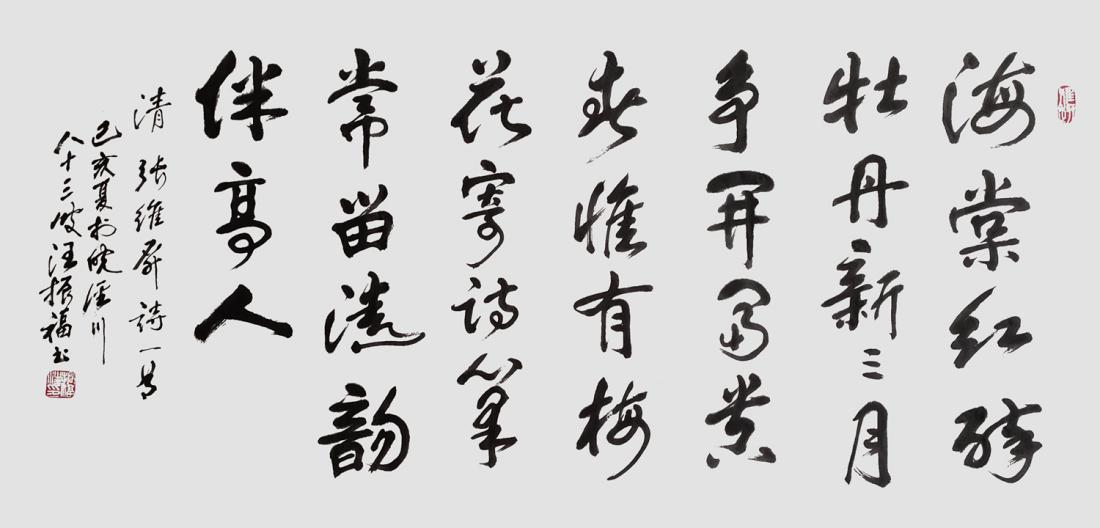 海棠红醉
牡丹新三月
争開富貴
春惟有梅
花寄诗筆
常留清韵
伴高人
清 张维屏诗一首
己亥夏於皖泾川
八十三叟汪振福书